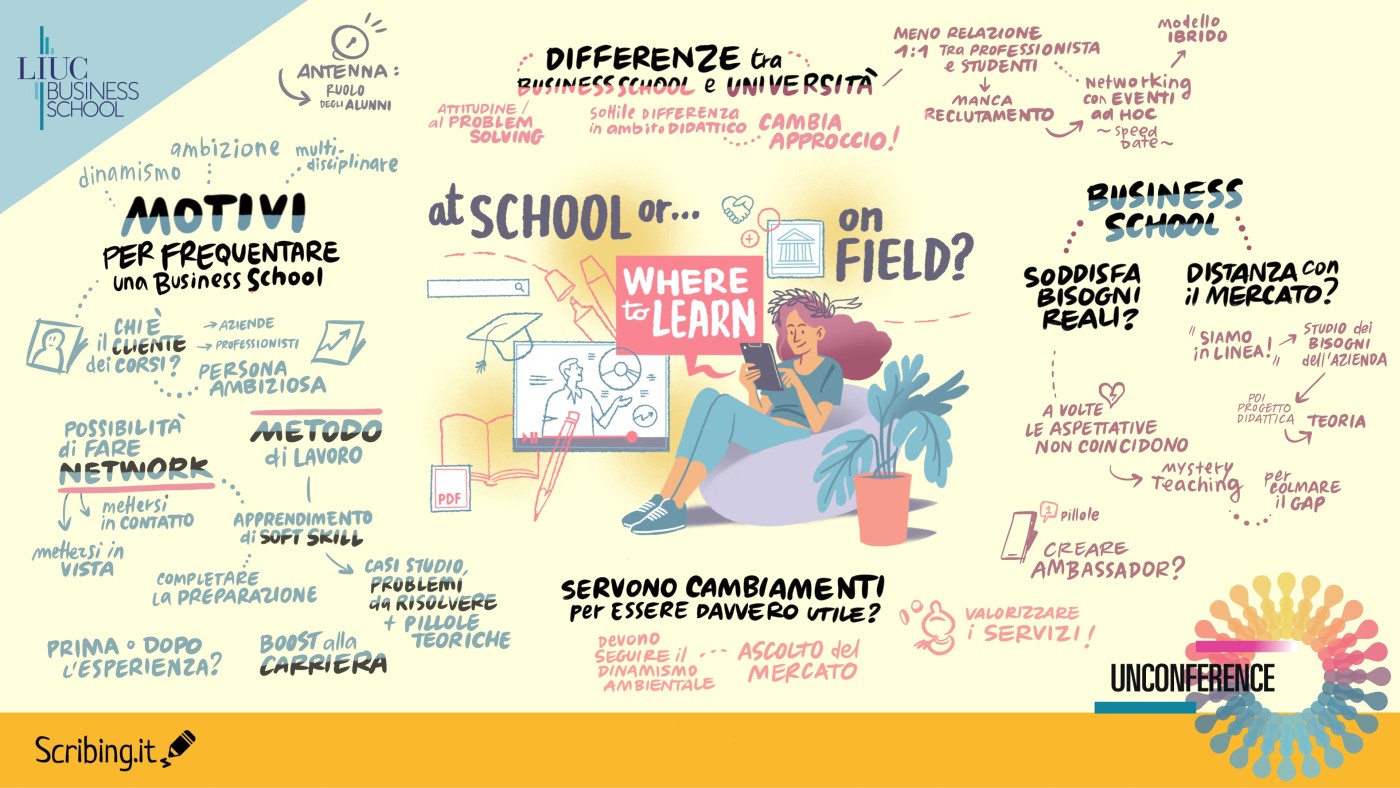 LIUC
BUSINESS
SCHOOL
ANTENNA:
RUOLO
DEGLI ALUNNI
dinamismo
ambizione
multi-
disciplinare
MOTIVI
PER FREQUENTARE
una Business School
CHI È
il CLIENTE
dei CORSI?
→ AZIENDE
→ PROFESSIONISTI
PERSONA
AMBIZIOSA
POSSIBILITÀ
di FARE
NETWORK
mettersi
in CONTATTO
mettersi in
VISTA
METODO
di LAVORO
APPRENDIMENTO
di SOFT SKILL
COMPLETARE
LA PREPARAZIONE
CASI STUDIO,
PROBLEMI
da RISOLVERE
+ PILLOLE
TEORICHE
PRIMA o DOPO
L'ESPERIENZA?
BOOST alla
CARRIERA
DIFFERENZE tra
BUSINESS SCHOOL e UNIVERSITÀ
ATTITUDINE/
al PROBLEM
SOLVING
SOttile DIFFERENZA
in ambito DIDATTICO
CAMBIA
APPROCCIO!
MENO RELAZIONE
1:1 TRA PROFESSIONISTA
e STUDENTI
MANCA
RECLUTAMENTO
Networking
con EVENTI
ad HOC
~speed
Date~
modello
IBRIDO
at SCHOOL or...
on
FIELD?
WHERE
to LEARN
PDF
SERVONO CAMBIAMENTI
per ESSERE DAVVERO UTILE?
DEVONO
SEGUIRE il
DINAMISMO
AMBIENTALE
ASCOLTO del
MERCATO
VALORIZZARE
i SERVIZI!
BUSINESS
SCHOOL
SODDISFA
BISOGNI
REALI?
DISTANZA con
il MERCATO?
"SIAMO
in LINEA!"
STUDIO dei
BISOGNI
dell'AZIENDA
POI
PROGETTO
DIDATTICA
TEORIA
A VOLTE
LE ASPETTATIVE
NON COINCIDONO
mystery
Teaching
per
COLMARE
il GAP
1
Pillole
CREARE
AMBASSADOR?
UNCONFERENCE
Scribing.it